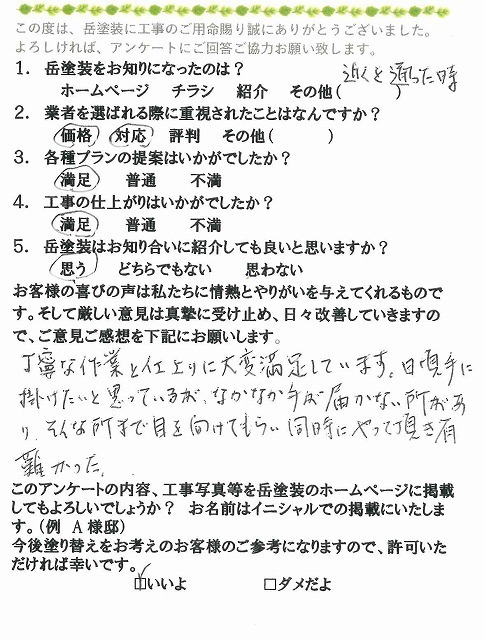 この度は、岳塗装に工事のご用命賜り誠にありがとうございました。
よろしければ、アンケートにご回答ご協力お願い致します。
1. 岳塗装をお知りになったのは？ 近くを通った時
ホームページ チラシ 紹介 その他( )
2. 業者を選ばれる際に重視されたことはなんですか？
価格 対応 評判 その他( )
3. 各種プランの提案はいかがでしたか？
満足 普通 不満
4. 工事の仕上がりはいかがでしたか？
満足 普通 不満
5. 岳塗装はお知り合いに紹介しても良いと思いますか？
思う どちらでもない 思わない
お客様の喜びの声は私たちに情熱とやりがいを与えてくれるもので
す。そして厳しい意見は真摯に受け止め、日々改善していきますの
で、ご意見ご感想を下記にお願いします。
丁寧な作業と仕上りに大変満足しています。日頃手に
掛けたいと思っているが、なかなか手が届かない所があ
り、そんな所まで目を向けてもらい同時にやって頂き有
難かった。
このアンケートの内容、工事写真等を岳塗装のホームページに掲載
してもよろしいでしょうか？ お名前はイニシャルでの掲載にいたしま
す。(例 A 様邸)
今後塗り替えをお考えのお客様のご参考になりますので、許可いた
だければ幸いです。
☑いいよ □ダメだよ